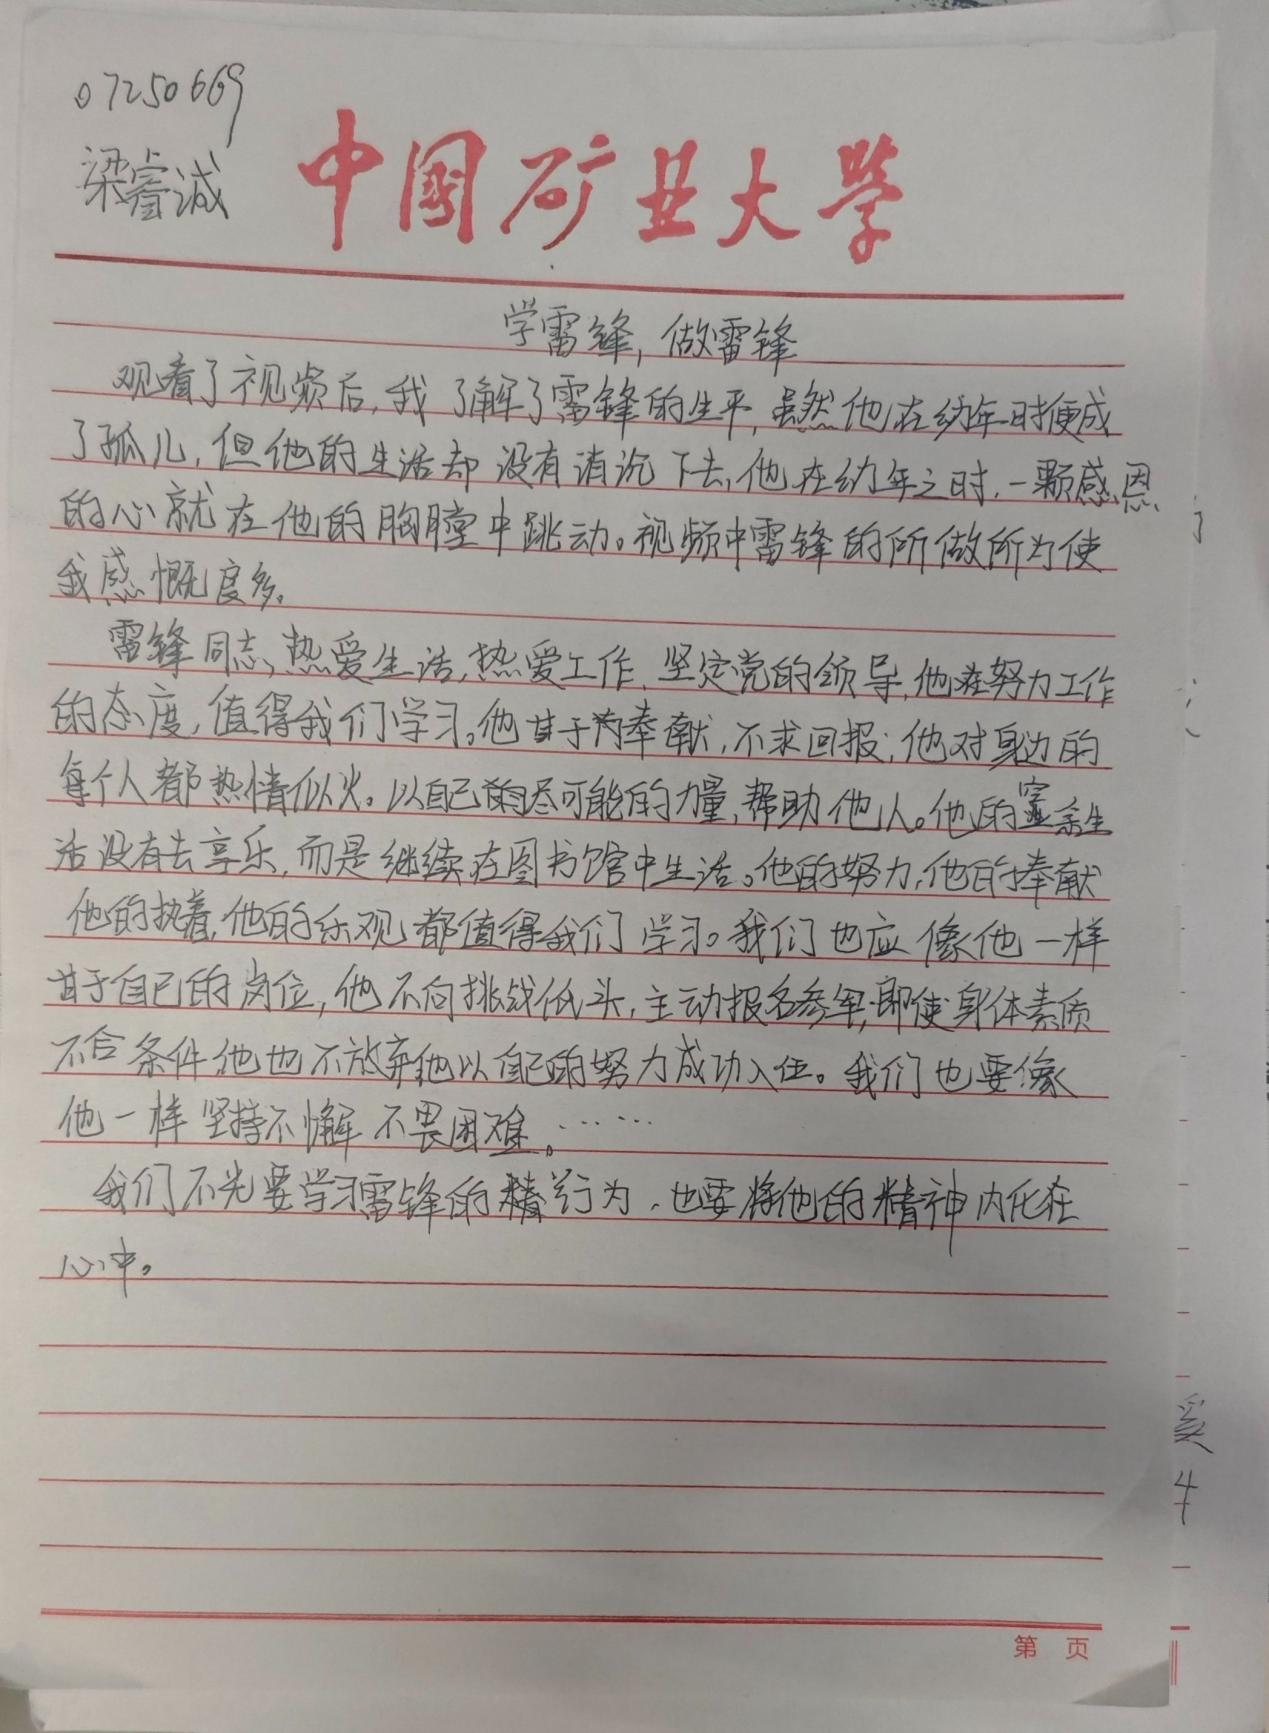 07250669
梁睿诚
中国矿业大学
学雷锋，做雷锋
观看了视频后，我了解了雷锋的生平，虽然他在幼年时便成
了孤儿，但他的生活却没有消沉下去，他在幼年之时，一颗感恩
的心就在他的胸膛中跳动。视频中雷锋的所做所为使
我感慨度多。
雷锋同志，热爱生活，热爱工作，坚定党的领导，他在努力工作
的态度，值得我们学习。他甘于为奉献，不求回报，他对身边的
每个人都热情似火。以自己的尽可能的力量，帮助他人。他的余生
活没有去享乐，而是继续在图书馆中生活。他的努力，他的奉献
他的执着，他的乐观都值得我们学习。我们也应像他一样
甘于自己的岗位，他不向挑战低头，主动报名参军，即使身体素质
不合条件，他也不放弃他以自己的努力成功入伍。我们也要像
他一样坚持不懈不畏困难。……
我们不光要学习雷锋的行为，也要将他的精神内化在
心中。
第 页